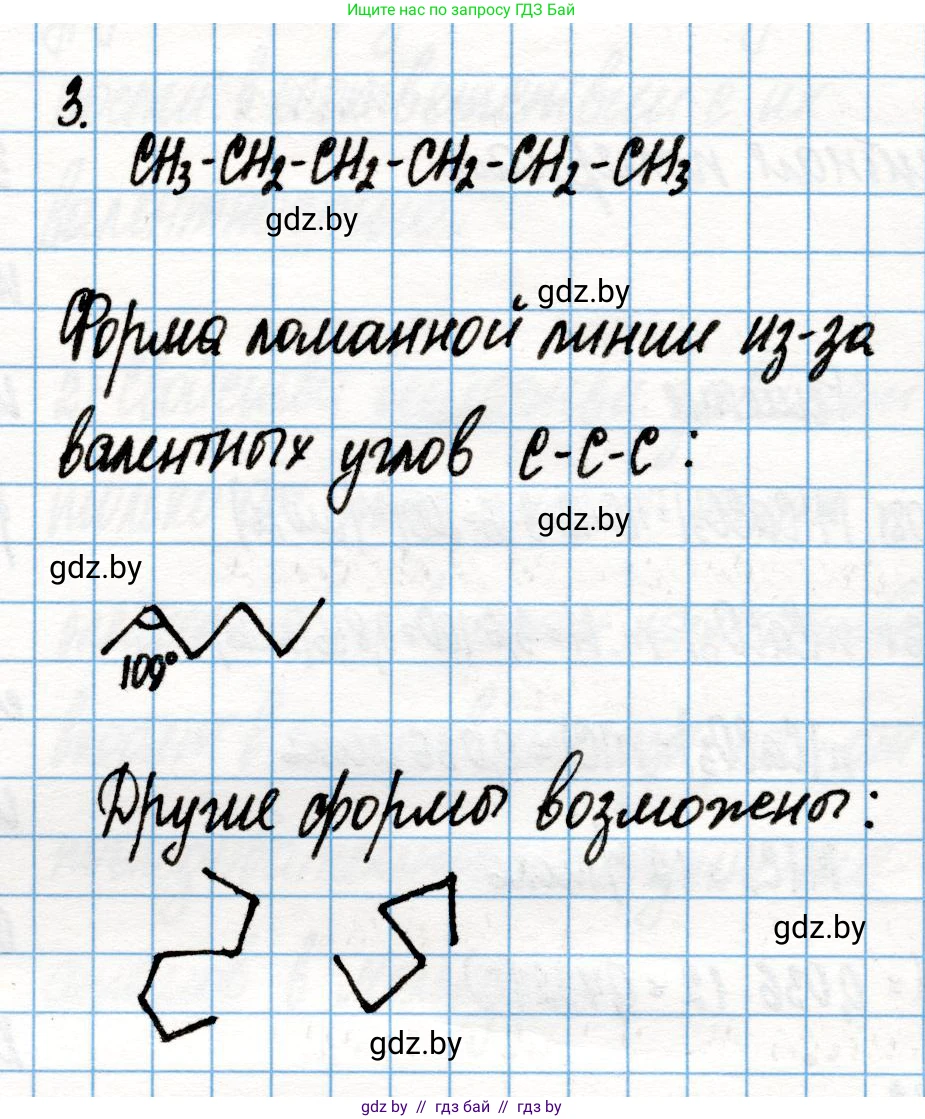 Ищите нас по запросу ГДЗ Бай
3.
CH3-CH2-CH2-CH2-CH2-CH3
gdz.by
gdz.by
Форма ломанной линии из-за
валентных углов C-C-C:
gdz.by
gdz.by
109°
Другие формы возможены:
gdz.by
gdz.by
gdz.by // гдз бай // гдз by